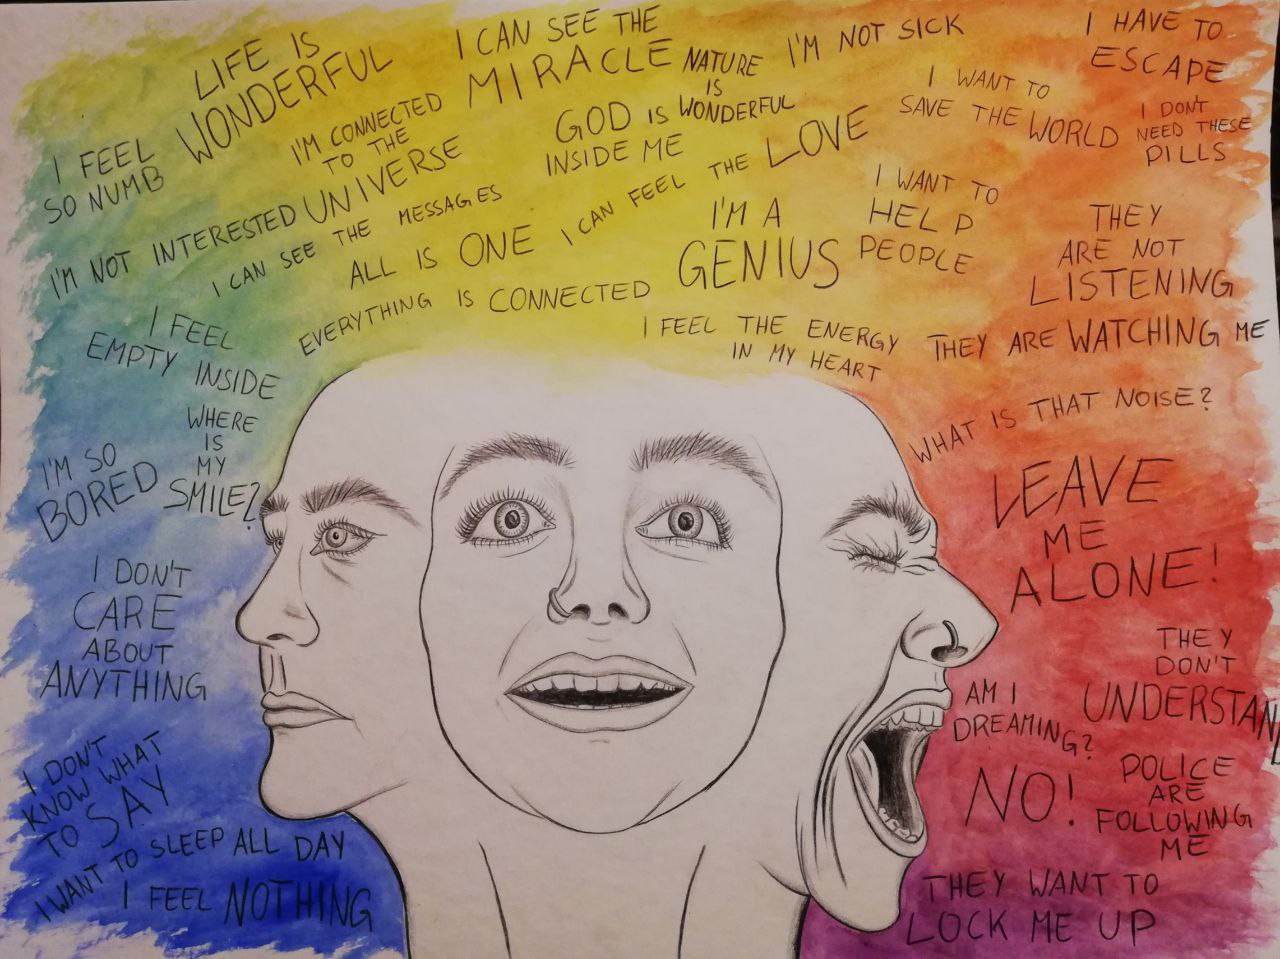 LIFE IS
WONDERFUL
I CAN SEE THE
MIRACLE
NATURE
IS
WONDERFUL
I'M NOT SICK
I HAVE TO
ESCAPE
I FEEL
SO NUMB
I'M CONNECTED
TO THE
UNIVERSE
GOD IS
INSIDE ME
I WANT TO
SAVE THE WORLD
I DON'T
NEED THESE
PILLS
I'M NOT INTERESTED
I CAN SEE THE MESSAGES
ALL IS ONE
I CAN FEEL THE LOVE
I'M A
GENIUS
I WANT TO
HELP
PEOPLE
THEY
ARE NOT
LISTENING
I FEEL
EMPTY INSIDE
EVERYTHING IS CONNECTED
I FEEL THE ENERGY
IN MY HEART
THEY ARE WATCHING ME
WHERE
IS
MY
SMILE?
WHAT IS THAT NOISE?
I'M SO
BORED
LEAVE
ME
ALONE!
I DON'T
CARE
ABOUT
ANYTHING
THEY
DON'T
UNDERSTAND
AM I
DREAMING?
I DON'T
KNOW WHAT
TO SAY
NO!
POLICE
ARE
FOLLOWING
ME
I WANT TO SLEEP ALL DAY
I FEEL NOTHING
THEY WANT TO
LOCK ME UP